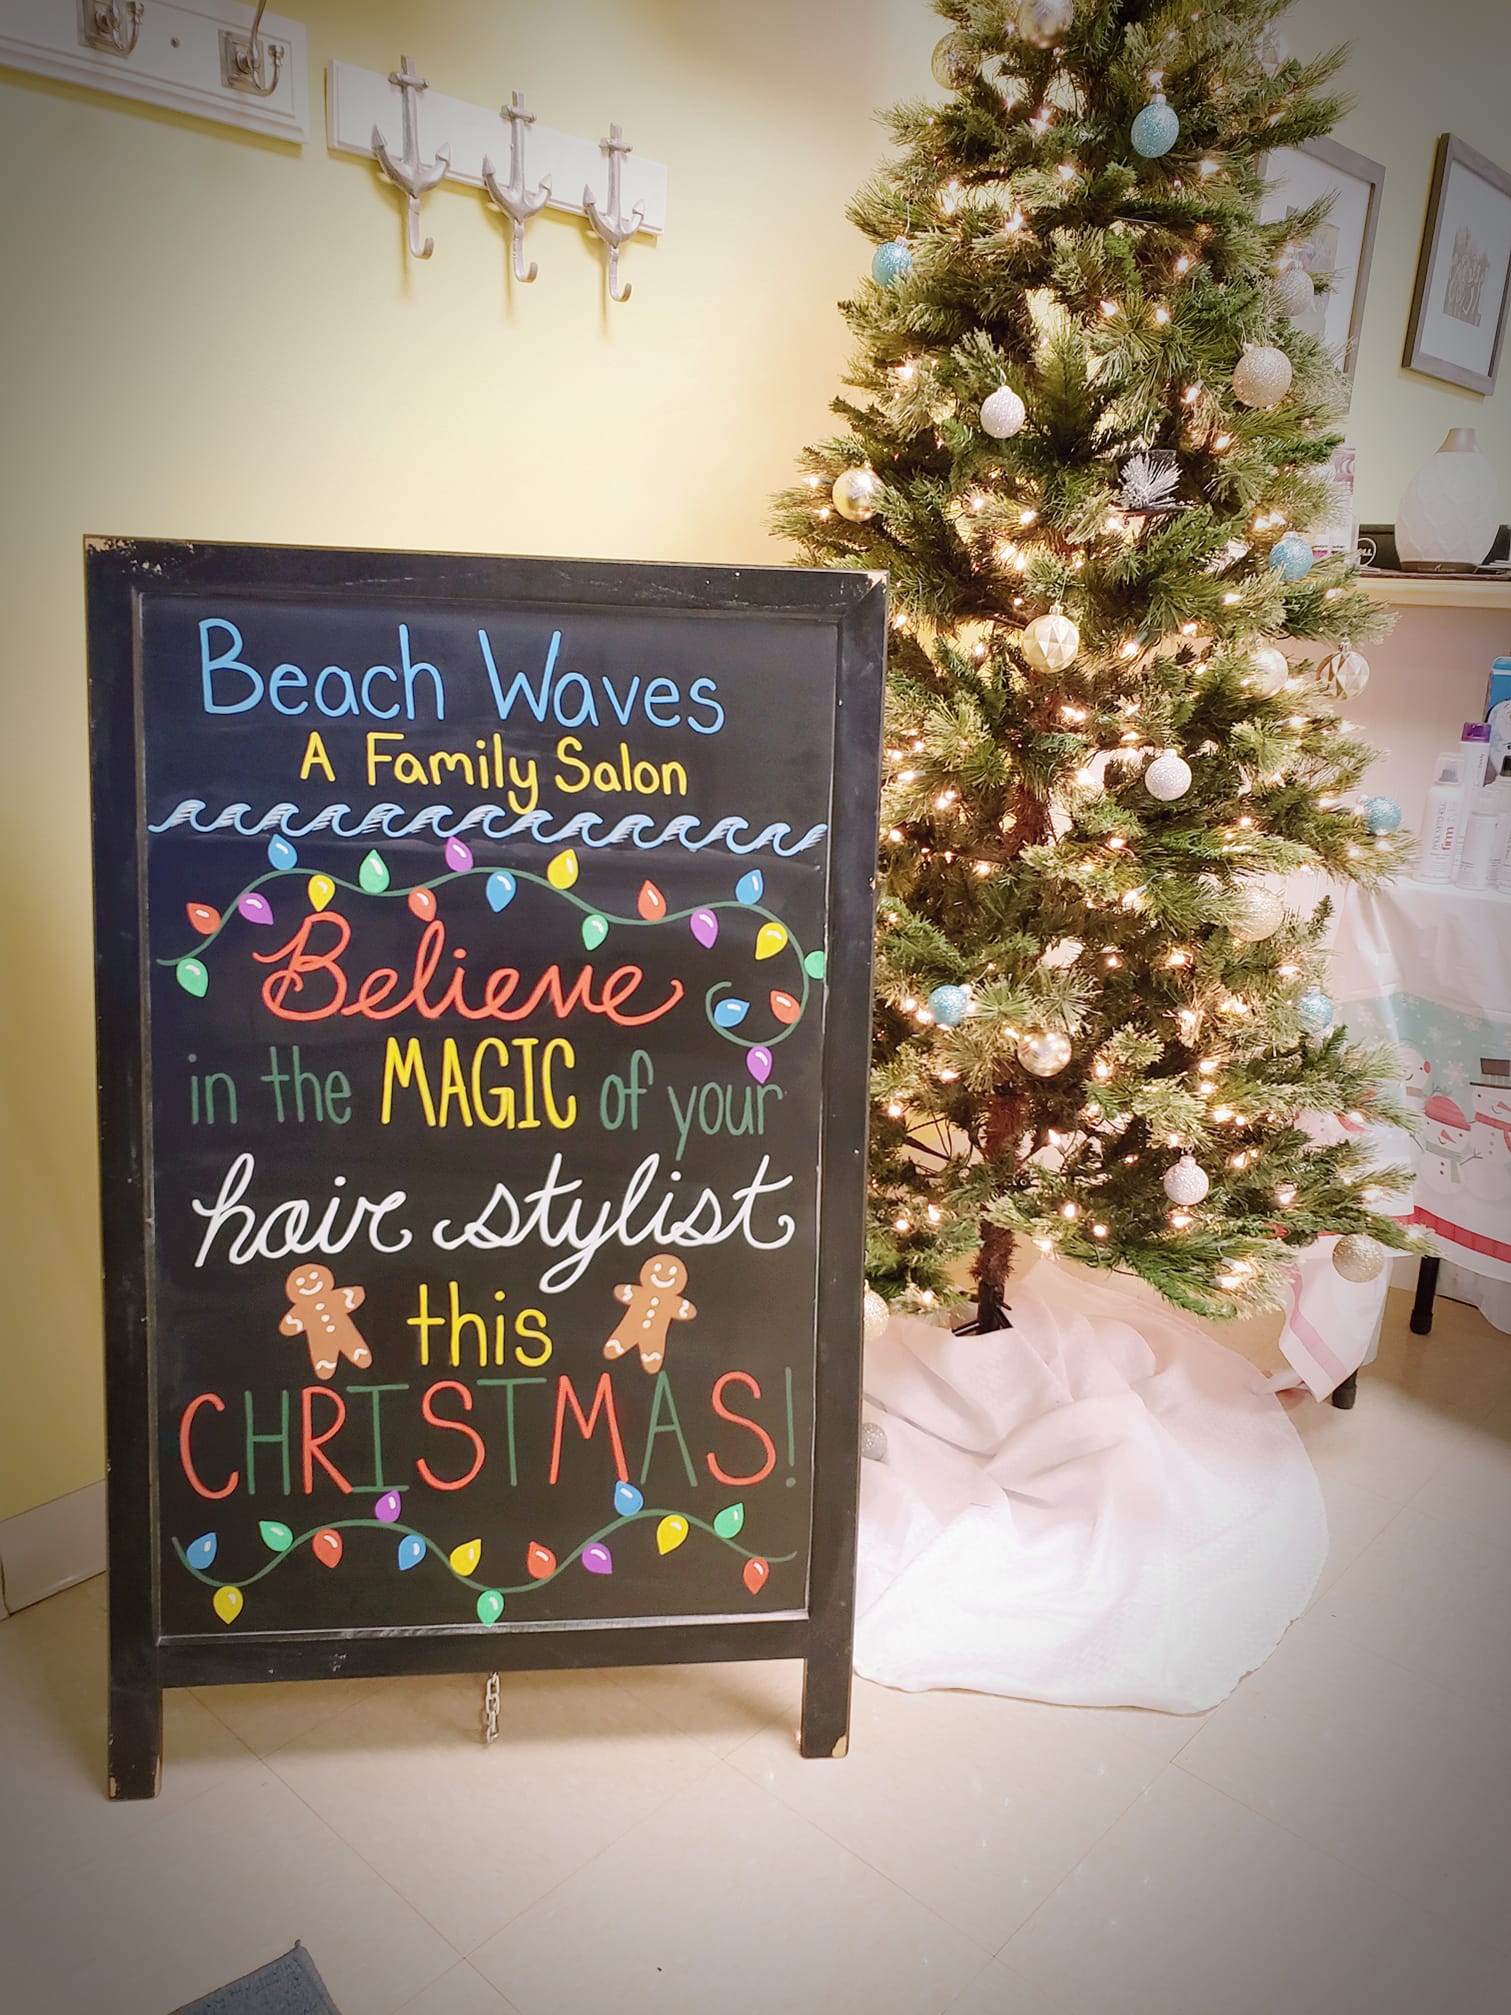 Beach Waves
A Family Salon
Believe
in the MAGIC of your
hair stylist
this
CHRISTMAS!
DELL
firm